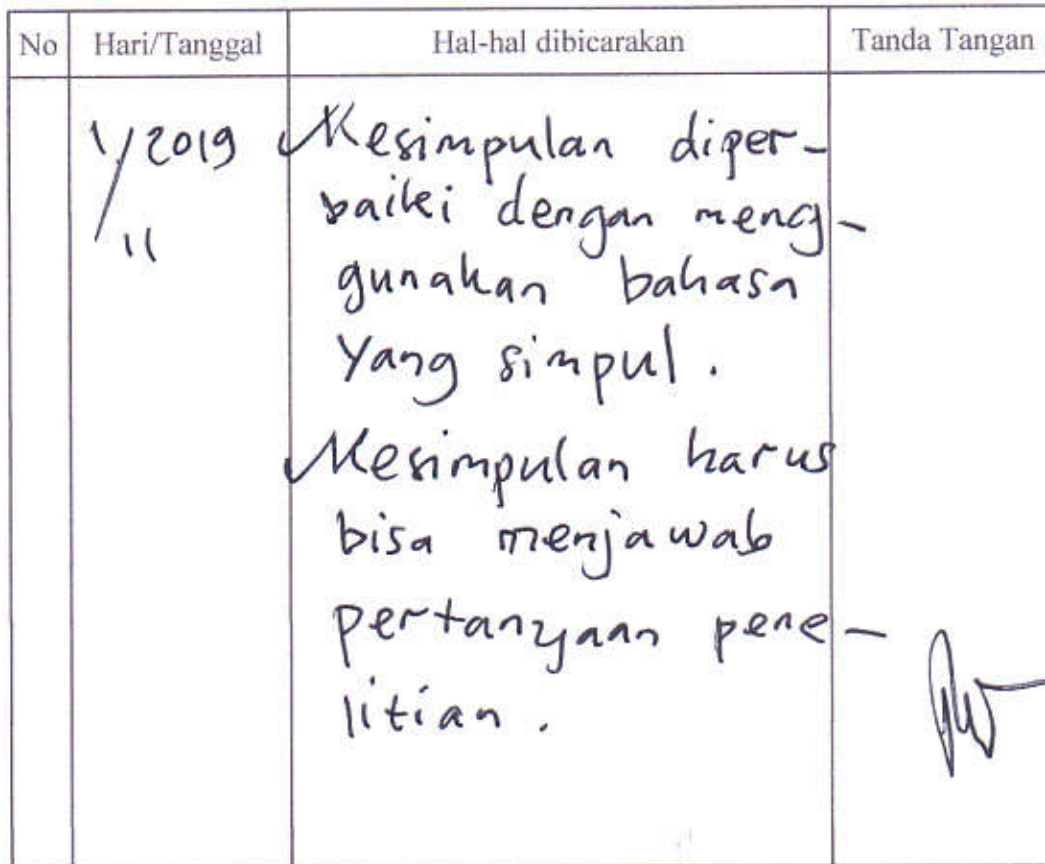 No Hari/Tanggal Hal-hal dibicarakan Tanda Tangan
1/11 2019 ✓Kesimpulan diper-
baiki dengan meng-
gunakan bahasa
yang simpul.
✓Kesimpulan harus
bisa menjawab
pertanyaan pene-
litian.